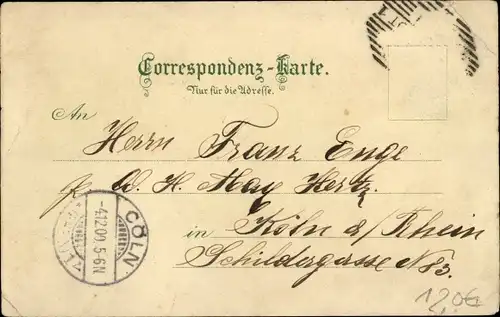 Correspondenz-Karte.
Nur für die Adresse.
An
Herrn Franz Enge
W. H. May Hertz
in Köln a/Rhein
Schildergasse N 83.
CÖLN
-4.12.00.5-6N
12.0€